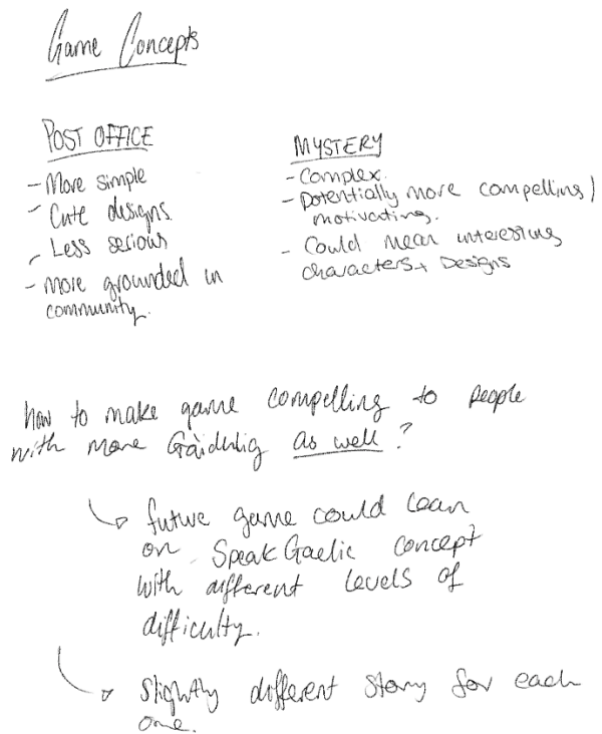 Game Concepts
POST OFFICE
- More simple
- Cute designs
- Less serious
- More grounded in
community.
MYSTERY
- Complex.
- Potentially more compelling/
motivating.
- Could mean interesting
characters + Designs
how to make game compelling to people
with more Gàidhlig as well?
↳ future game could lean
on SpeakGaelic concept
with different levels of
difficulty.
↳ slightly different story for each
one.